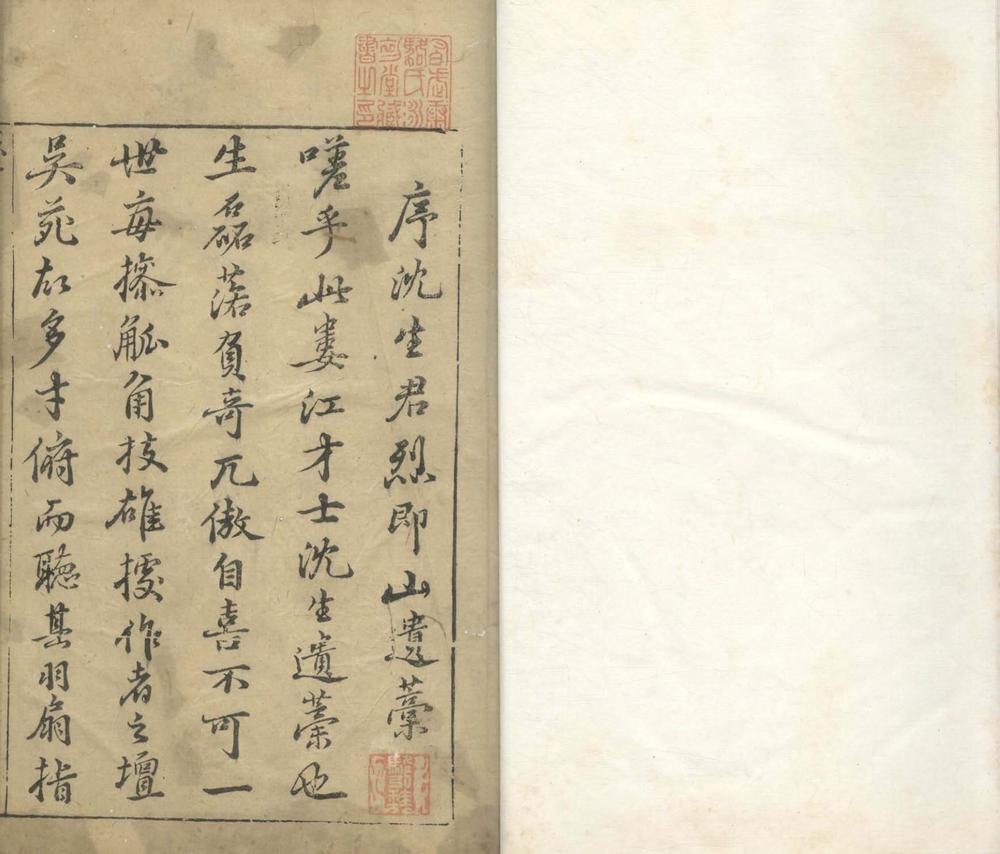 序沈生君烈即山遺藁
嗟乎此婁江才士沈生遺藁也
生磊落負奇兀傲自喜不可一
世每搽觚角技雄據作者之壇
吳苑故多才俯而聽其羽扇指